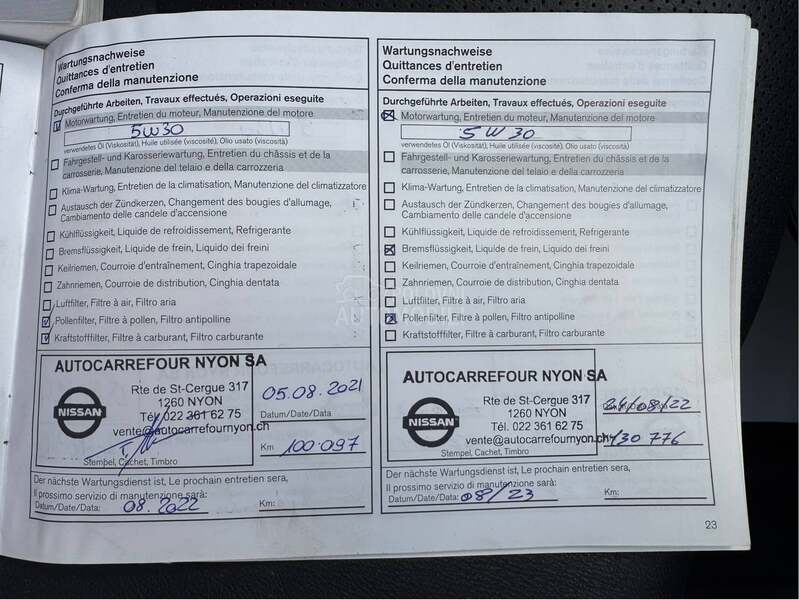 Wartungsnachweise
Quittances d'entretien
Conferma della manutenzione
Durchgeführte Arbeiten, Travaux effectués, Operazioni eseguite
Motorwartung, Entretien du moteur, Manutenzione del motore
5W30
verwendetes Öl (Viskosität), Huile utilisée (viscosité), Olio usato (viscosità)
Fahrgestell- und Karosseriewartung, Entretien du châssis et de la
carrosserie, Manutenzione del telaio e della carrozzeria
Klima-Wartung, Entretien de la climatisation, Manutenzione del climatizzatore
Austausch der Zündkerzen, Changement des bougies d'allumage,
Cambiamento delle candele d'accensione
Kühlflüssigkeit, Liquide de refroidissement, Refrigerante
Bremsflüssigkeit, Liquide de frein, Liquido dei freini
Keilriemen, Courroie d'entraînement, Cinghia trapezoidale
Zahnriemen, Courroie de distribution, Cinghia dentata
Luftfilter, Filtre à air, Filtro aria
Pollenfilter, Filtre à pollen, Filtro antipolline
Kraftstofffilter, Filtre à carburant, Filtro carburante
AUTOCARREFOUR NYON SA
NISSAN
Rte de St-Cergue 317
1260 NYON
Tél. 022 361 62 75
vente@autocarrefournyon.ch
Stempel, Cachet, Timbro
05.08.2021
Datum/Date/Data
Km 100.097
Der nächste Wartungsdienst ist, Le prochain entretien sera,
Il prossimo servizio di manutenzione sarà:
Datum/Date/Data: 08.2022 Km:
Wartungsnachweise
Quittances d'entretien
Conferma della manutenzione
Durchgeführte Arbeiten, Travaux effectués, Operazioni eseguite
Motorwartung, Entretien du moteur, Manutenzione del motore
5W30
verwendetes Öl (Viskosität), Huile utilisée (viscosité), Olio usato (viscosità)
Fahrgestell- und Karosseriewartung, Entretien du châssis et de la
carrosserie, Manutenzione del telaio e della carrozzeria
Klima-Wartung, Entretien de la climatisation, Manutenzione del climatizzatore
Austausch der Zündkerzen, Changement des bougies d'allumage,
Cambiamento delle candele d'accensione
Kühlflüssigkeit, Liquide de refroidissement, Refrigerante
Bremsflüssigkeit, Liquide de frein, Liquido dei freini
Keilriemen, Courroie d'entraînement, Cinghia trapezoidale
Zahnriemen, Courroie de distribution, Cinghia dentata
Luftfilter, Filtre à air, Filtro aria
Pollenfilter, Filtre à pollen, Filtro antipolline
Kraftstofffilter, Filtre à carburant, Filtro carburante
AUTOCARREFOUR NYON SA
NISSAN
Rte de St-Cergue 317
1260 NYON
Tél. 022 361 62 75
vente@autocarrefournyon.ch
Stempel, Cachet, Timbro
/08/22
130 776
Der nächste Wartungsdienst ist, Le prochain entretien sera,
Il prossimo servizio di manutenzione sarà:
Datum/Date/Data: 08/23 Km:
23